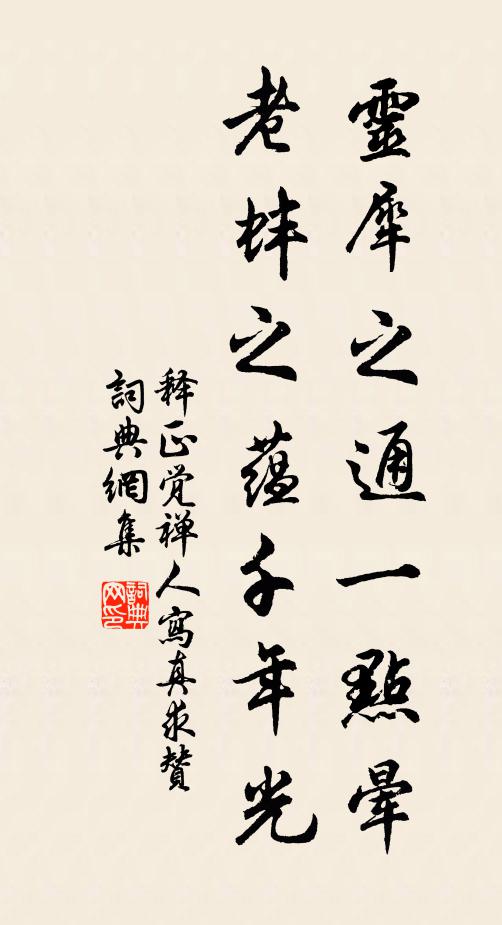 靈犀之通一點暈
老蚌之蘊千年光
释正觉禅人寫真求贊
詞典網集
詞典网印